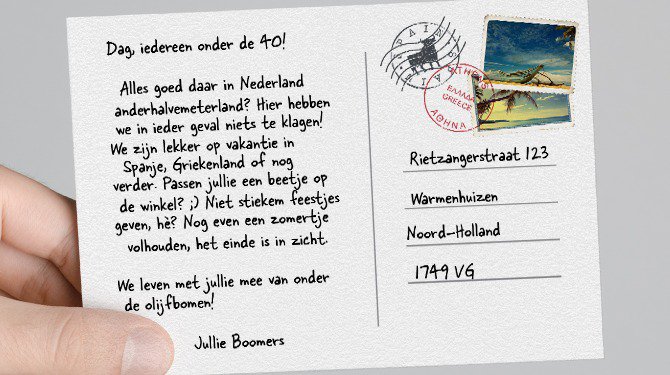 Dag, iedereen onder de 40!
Alles goed daar in Nederland
anderhalvemeterland? Hier hebben
we in ieder geval niets te klagen!
We zijn lekker op vakantie in
Spanje, Griekenland of nog
verder. Passen jullie een beetje op
de winkel? ;) Niet stiekem feestjes
geven, hè? Nog even een zomertje
volhouden, het einde is in zicht.
We leven met jullie mee van onder
de olijfbomen!
Jullie Boomers
SPAIN
ATHENS
ΕΛΛΑΔΑ
GREECE
ΑΘΗΝΑ
Rietzangerstraat 123
Warmenhuizen
Noord-Holland
1749 VG